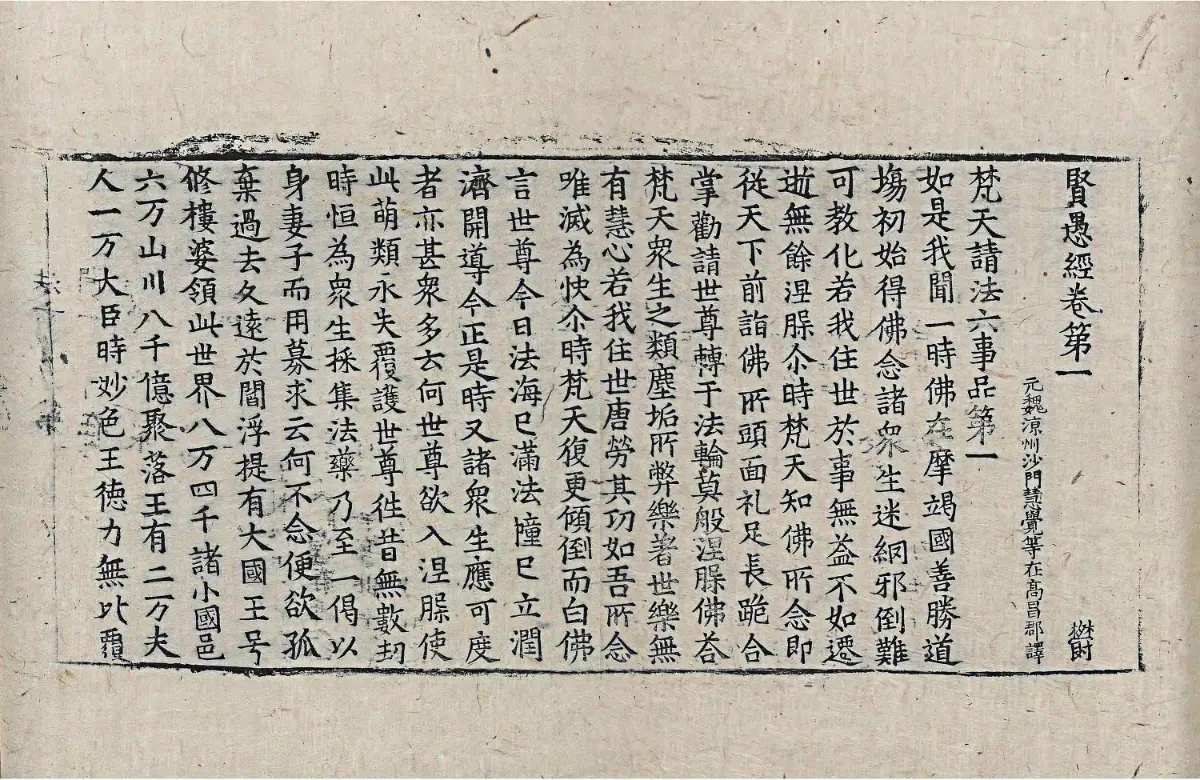 賢愚經卷第一
元魏涼州沙門慧覺等在高昌郡譯
梵天請法六事品第一
如是我聞一時佛在摩竭國善勝道
塲初始得佛念諸衆生迷網邪倒難
可教化若我住世於事無益不如遷
逝無餘涅槃尒時梵天知佛所念即
從天下前詣佛所頭面礼足長跪合
掌勸請世尊轉于法輪莫般涅槃佛荅
梵天衆生之類塵垢所弊樂著世樂無
有慧心若我住世唐勞其功如吾所念
唯滅為快尒時梵天復更傾倒而白佛
言世尊今日法海已滿法幢已立潤
濟開導今正是時又諸衆生應可度
者亦甚衆多云何世尊欲入涅槃使
此萌類永失覆護世尊徃昔無數劫
時恒為衆生採集法藥乃至一偈以
身妻子而用募求云何不念便欲孤
棄過去久遠於閻浮提有大國王号
修樓婆領此世界八万四千諸小國邑
六万山川八千億聚落王有二万夫
人一万大臣時妙色王德力無比覆